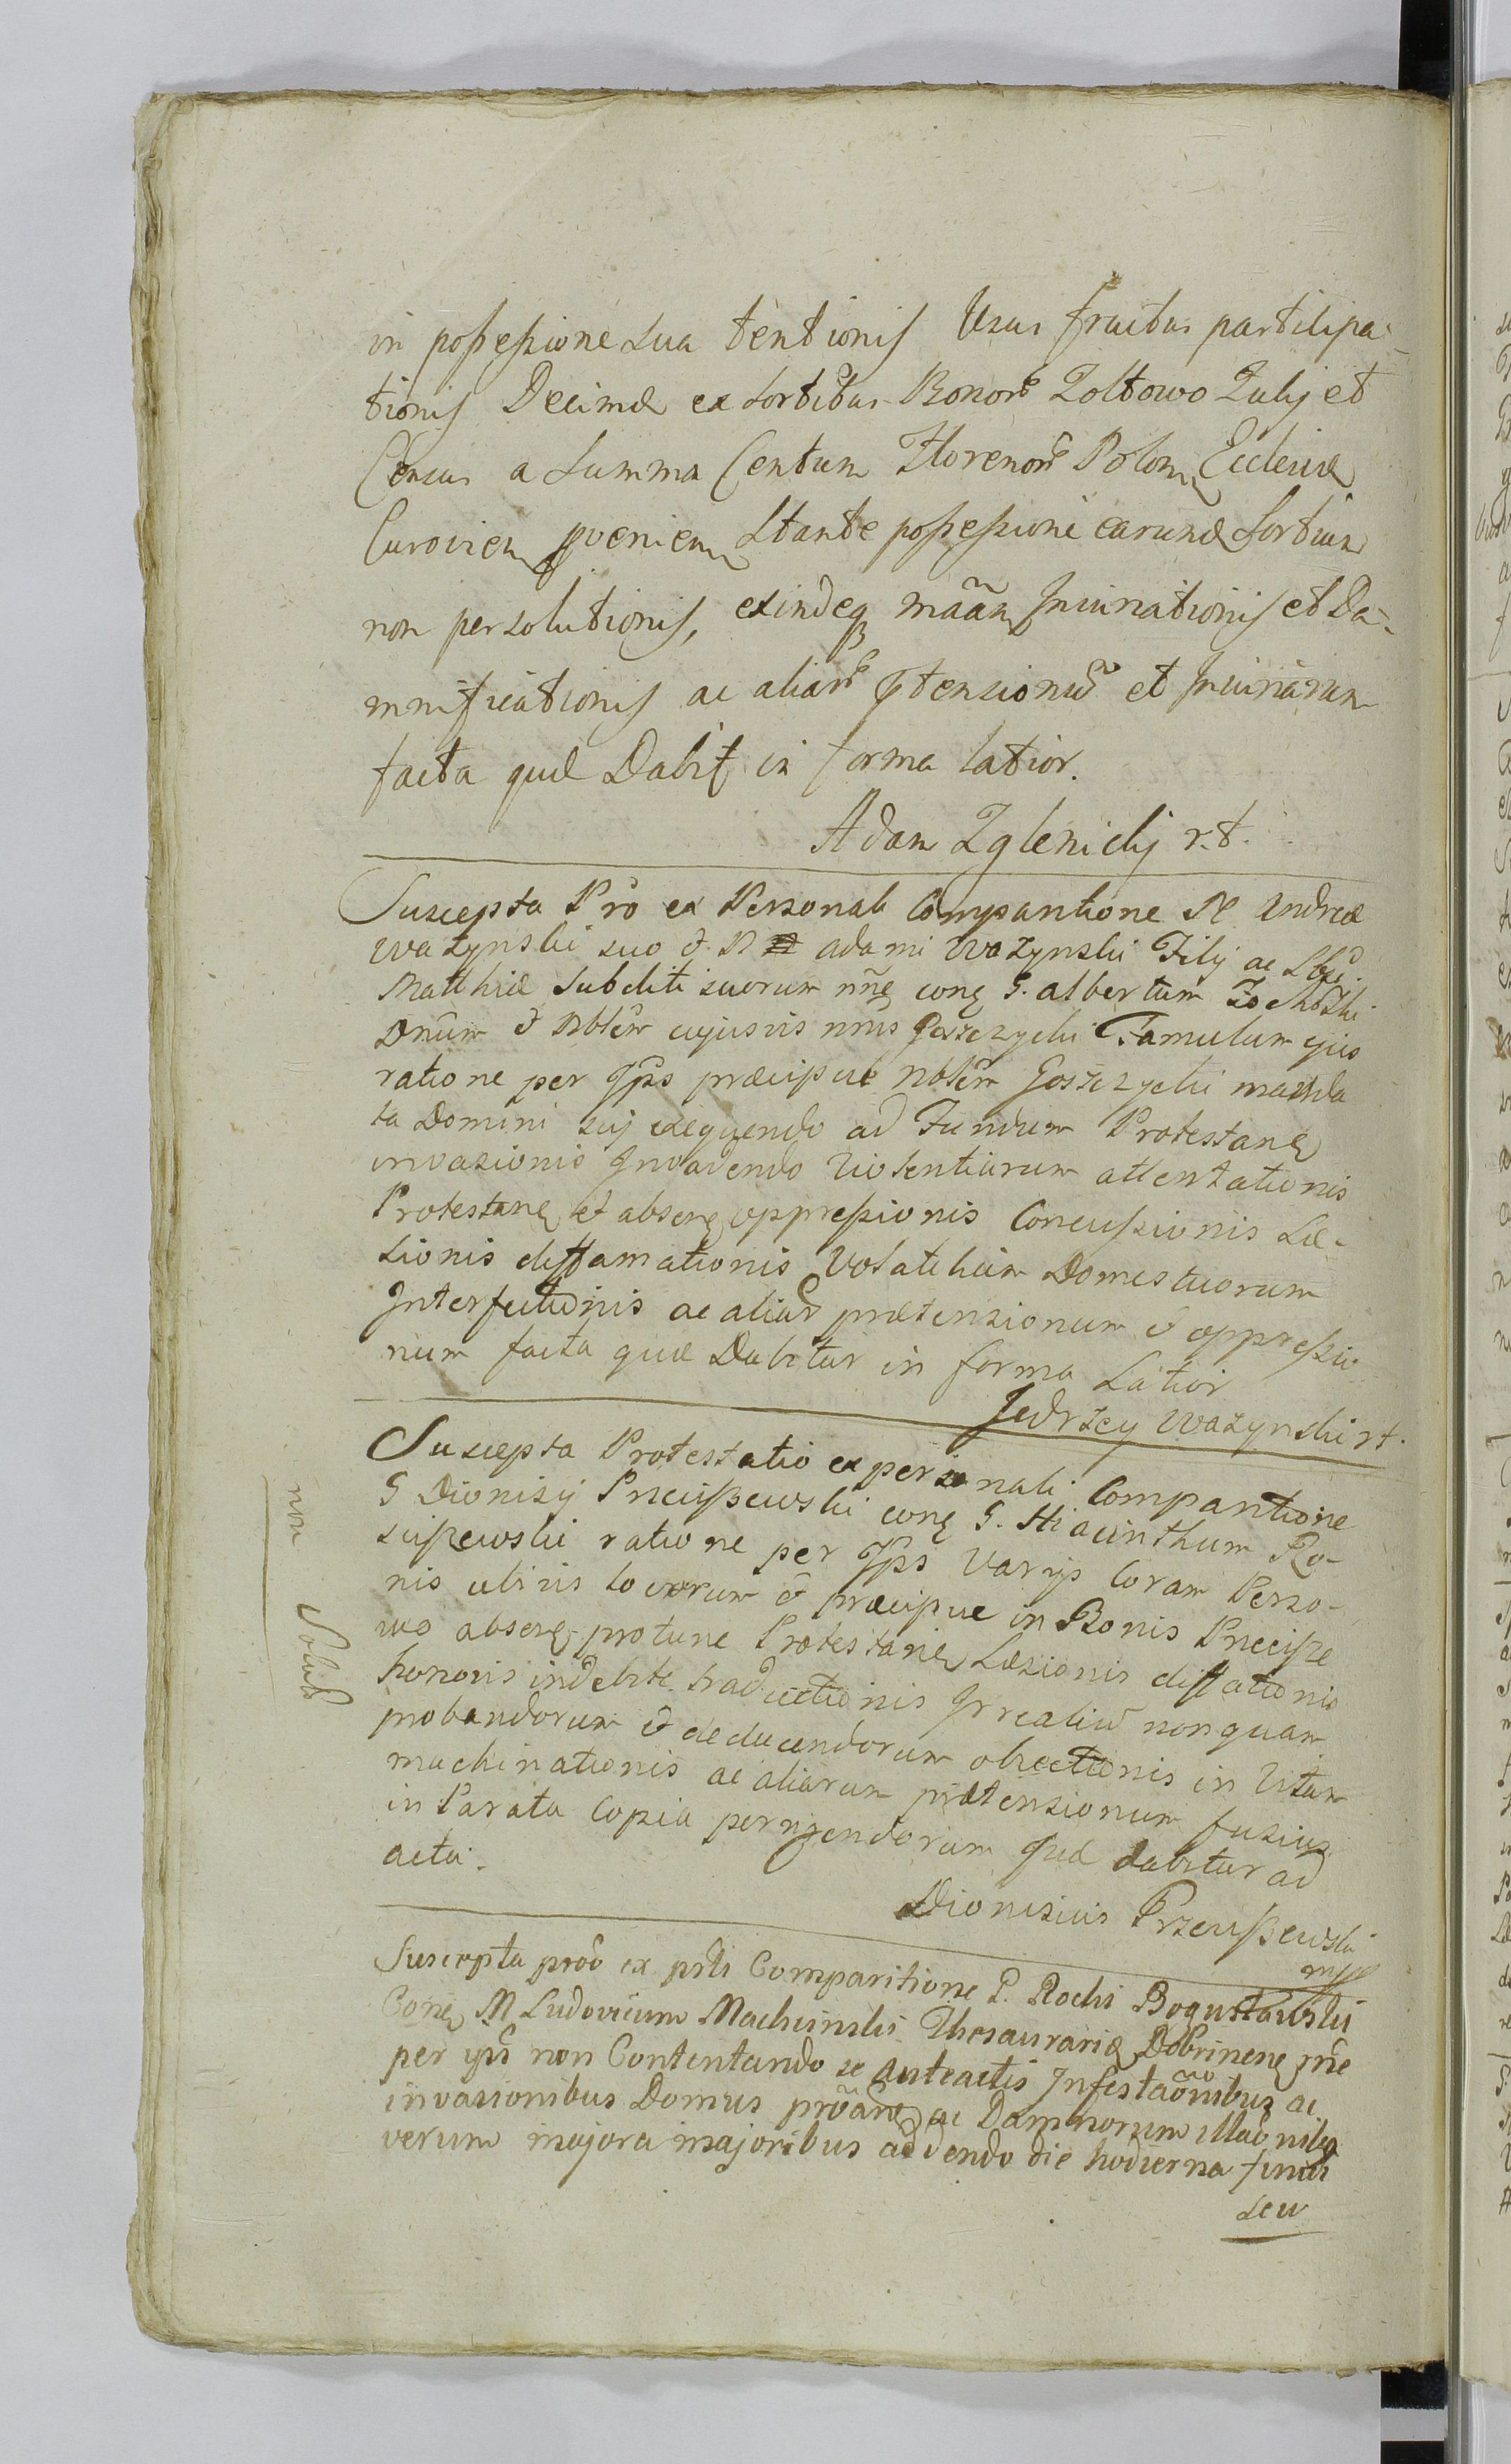 in possessione sua tentionis Usus fructus participa-
tionis Decimæ ex sortibus Bonorũ Zoltowo Zulij et
Census a Summa Centum Florenorũ Polon Ecclesiæ
Curovien pvenien Stante possessione earund Sortium
non persolutionis, exindeq maãm Injuriationis et Da-
mnificationis ac aliarũ ptensionũ et Injuriarum
facta quæ Dabit in forma latior.
Adam Zglenicki r.t.
Suscepta Pro ex Personali Comparitione N Andreæ
Wazynski suo et N adami Wazynski Filij ac
Matthiæ Subditi suorum nñe cong G. albertum Zochowski
Dnum et Nblem cujusvis nnis Goszczycki Famulum ejus
ratione per Ipsos præcipue Nblem Goszczycki manda
ta Domini sui exequendo ad Fundum Protestan
invasionis Invadendo Violentiarum attentationis
Protestan et absen oppressionis Concussionis Læ-
sionis diffamationis Volatilium Domesticorum
Interfectionis ac aliarũ prætensionum et oppressio
num facta quæ Dabitur in forma Latior
Jedrzey Wazynski rt.
Suscepta Protestatio ex personali Comparitione
G Dionisij Prciszewski cong G. Hiacinthum Ro-
sciszewski ratione per Ipsũ Varijs Coram Perso-
nis ubivis locorum et præcipue in Bonis Prcisze
wo absen protunc Protestan Læsionis diffationis
honoris indebite traductionis Irrealiũ nonquam
probandorum et deducendorum obiectionis in Vitam
machinationis ac aliarum prætensionum fusius
in Parata Copia pernigendorum quæ dabitur ad
acta.
Dionisius Przciszewski
mpp
non
Solvit
Suscepta proõ ex prli Comparitione G. Rochi Bogusławski
Cong M Ludovicum Machcinski Thesaurariæ Dobrinen rñe
per ipsũ non Contentando se anteactis Infestaõnibus ac
invasionibus Domus proãn ac Damnorum illaõnibq
verum majora majoribus addendo die hodierna
seu